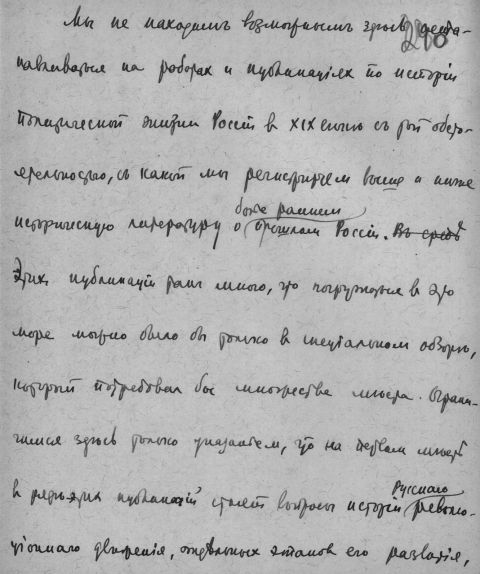 Мы не находимъ возможнымъ здѣсь оста-
навливаться на работах и публикаціях по исторіи
политической жизни Россіи в XIX съ той обсто-
ятельностью, съ какой мы регистрируем выше и ниже
более раннем
историческую литературу о прошлом Россіи. Въ средѣ
Этих публикацій так много, что погружаться в это
море можно было бы только в спеціальном обзорѣ,
который потребовал бы множества мѣста. Ограни-
чимся здѣсь только указаніем, что на первом мѣстѣ
Русскаго
в публикацій стоят вопросы исторіи револю-
ціоннаго движенія, отдѣльных этапов его развитія,